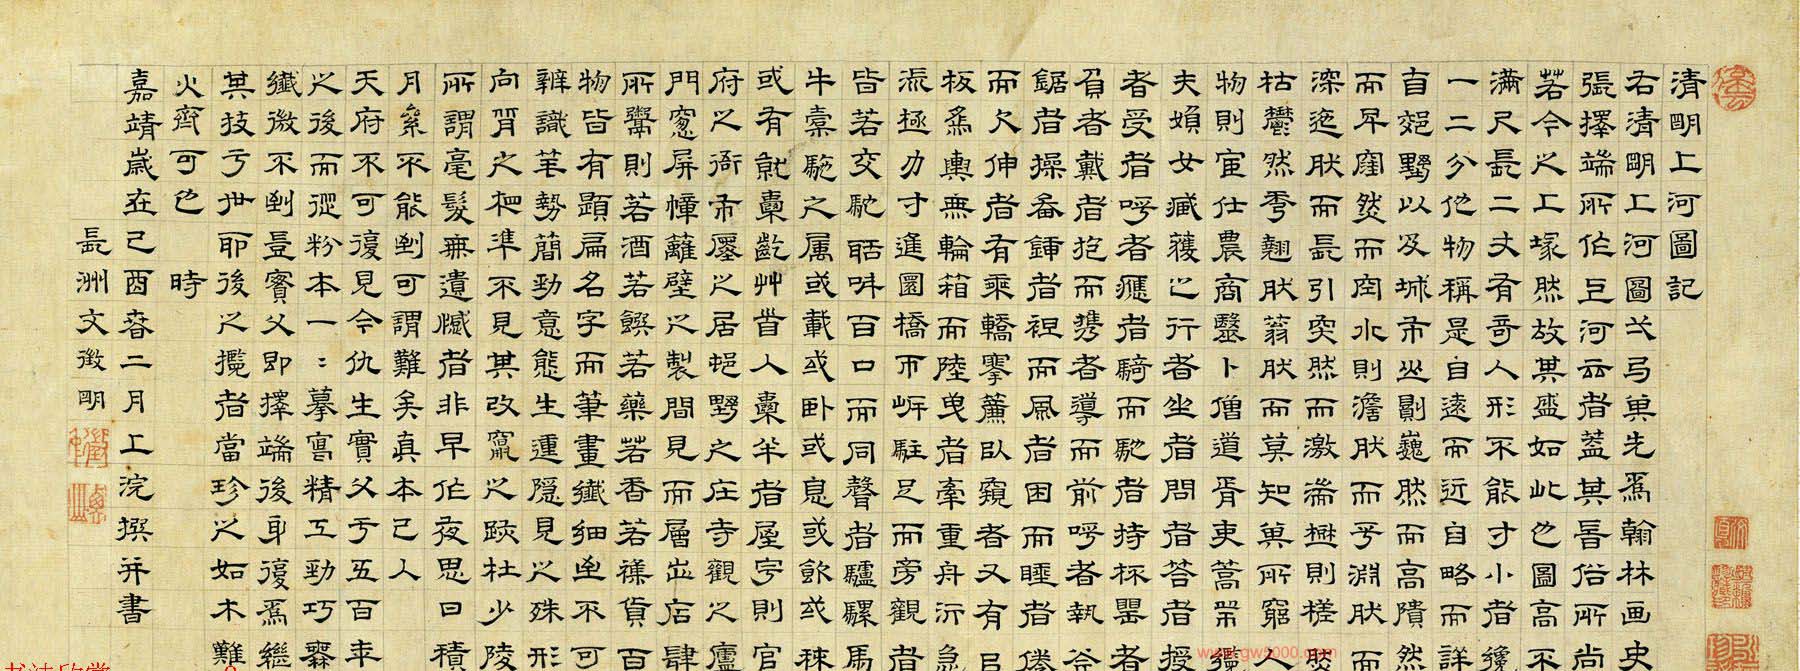 清明上河圖記
右清明上河圖一弓菓先為翰林画史
張擇端所作上河云者蓋其舊俗所尚
若今之上塚然故其盛如此也圖高不
滿尺長二丈有奇人形不能寸小者纔
一二分他物稱是自遠而近自略而詳
自郊野以及城市山則巍然而高隤然
而卑窪然而空水則澹然而平淵然而
深迤然而長引突然而激湍樹則槎然
枯鬱然秀翹然蓊然而莫知其所窮人
物則官仕農商醫卜僧道胥吏篙師纜
夫婦女臧獲之行者坐者問者答者授
者受者呼者應者騎而馳者持杯罌者
負者戴者抱而携者導而前呼者執斧
鋸者操畚鍤者裸而風者困而睡者倦
而欠伸者有乘轎搴簾以窺者又有以
板為輿無輪箱而陸曳者牽重舟泝急
流極力寸進圜橋匝岸駐足而旁觀者
皆若交馳聒叫百口而同聲者驢騾馬
牛橐駝之属或載或卧或息或飲或秣
或有就槖齕草首入槖半者屋宇則官
府之衙市廛之居邨野之庄寺觀之廬
門窗屏幛籬壁之製間見而層出店肆
所鬻則若酒若饌若藥若香若雜貨百
物皆有題扁名字而筆畫纖細至不可
辨識筆勢簡勁意態生運隱見之殊形
向背之相準不見其改竄之跡杜少陵
所謂毫髮無遺憾者非早作夜思日積
月絫不能到可謂難矣真本已入
天府不可復見今仇生實父于五百年
之後而從粉本一一摹寫精工勁巧纍
纖微不到豈實父即擇端後身復為繼
其技于世耶後之攬者當珍之如木難
火齊可也　時
嘉靖歲在己酉春二月上浣撰并書
長洲文徵明
www.gw5000.com
书法欣赏